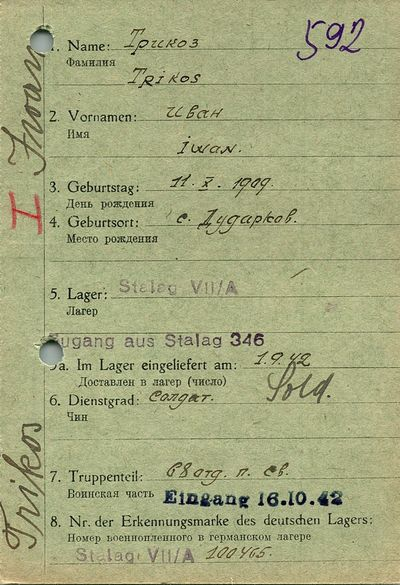 592
1. Name: Трикоз
Фамилия
Trikos
2. Vornamen: Иван
Имя
iwan.
3. Geburtstag: 11. X. 1909.
День рождения
4. Geburtsort: с. Дударков.
Место рождения
5. Lager: Stalag VII/A
Лагер
Zugang aus Stalag 346
5a. Im Lager eingeliefert am: 1.9.42
Доставлен в лагер (число)
6. Dienstgrad: солдат. Sold.
Чин
7. Truppenteil: 68 отд. п. св.
Воинская часть Eingang 16.10.42
8. Nr. der Erkennungsmarke des deutschen Lagers:
Номер военнопленного в германском лагере
Stalag VII/A 100465.
Trikos
I Iwan